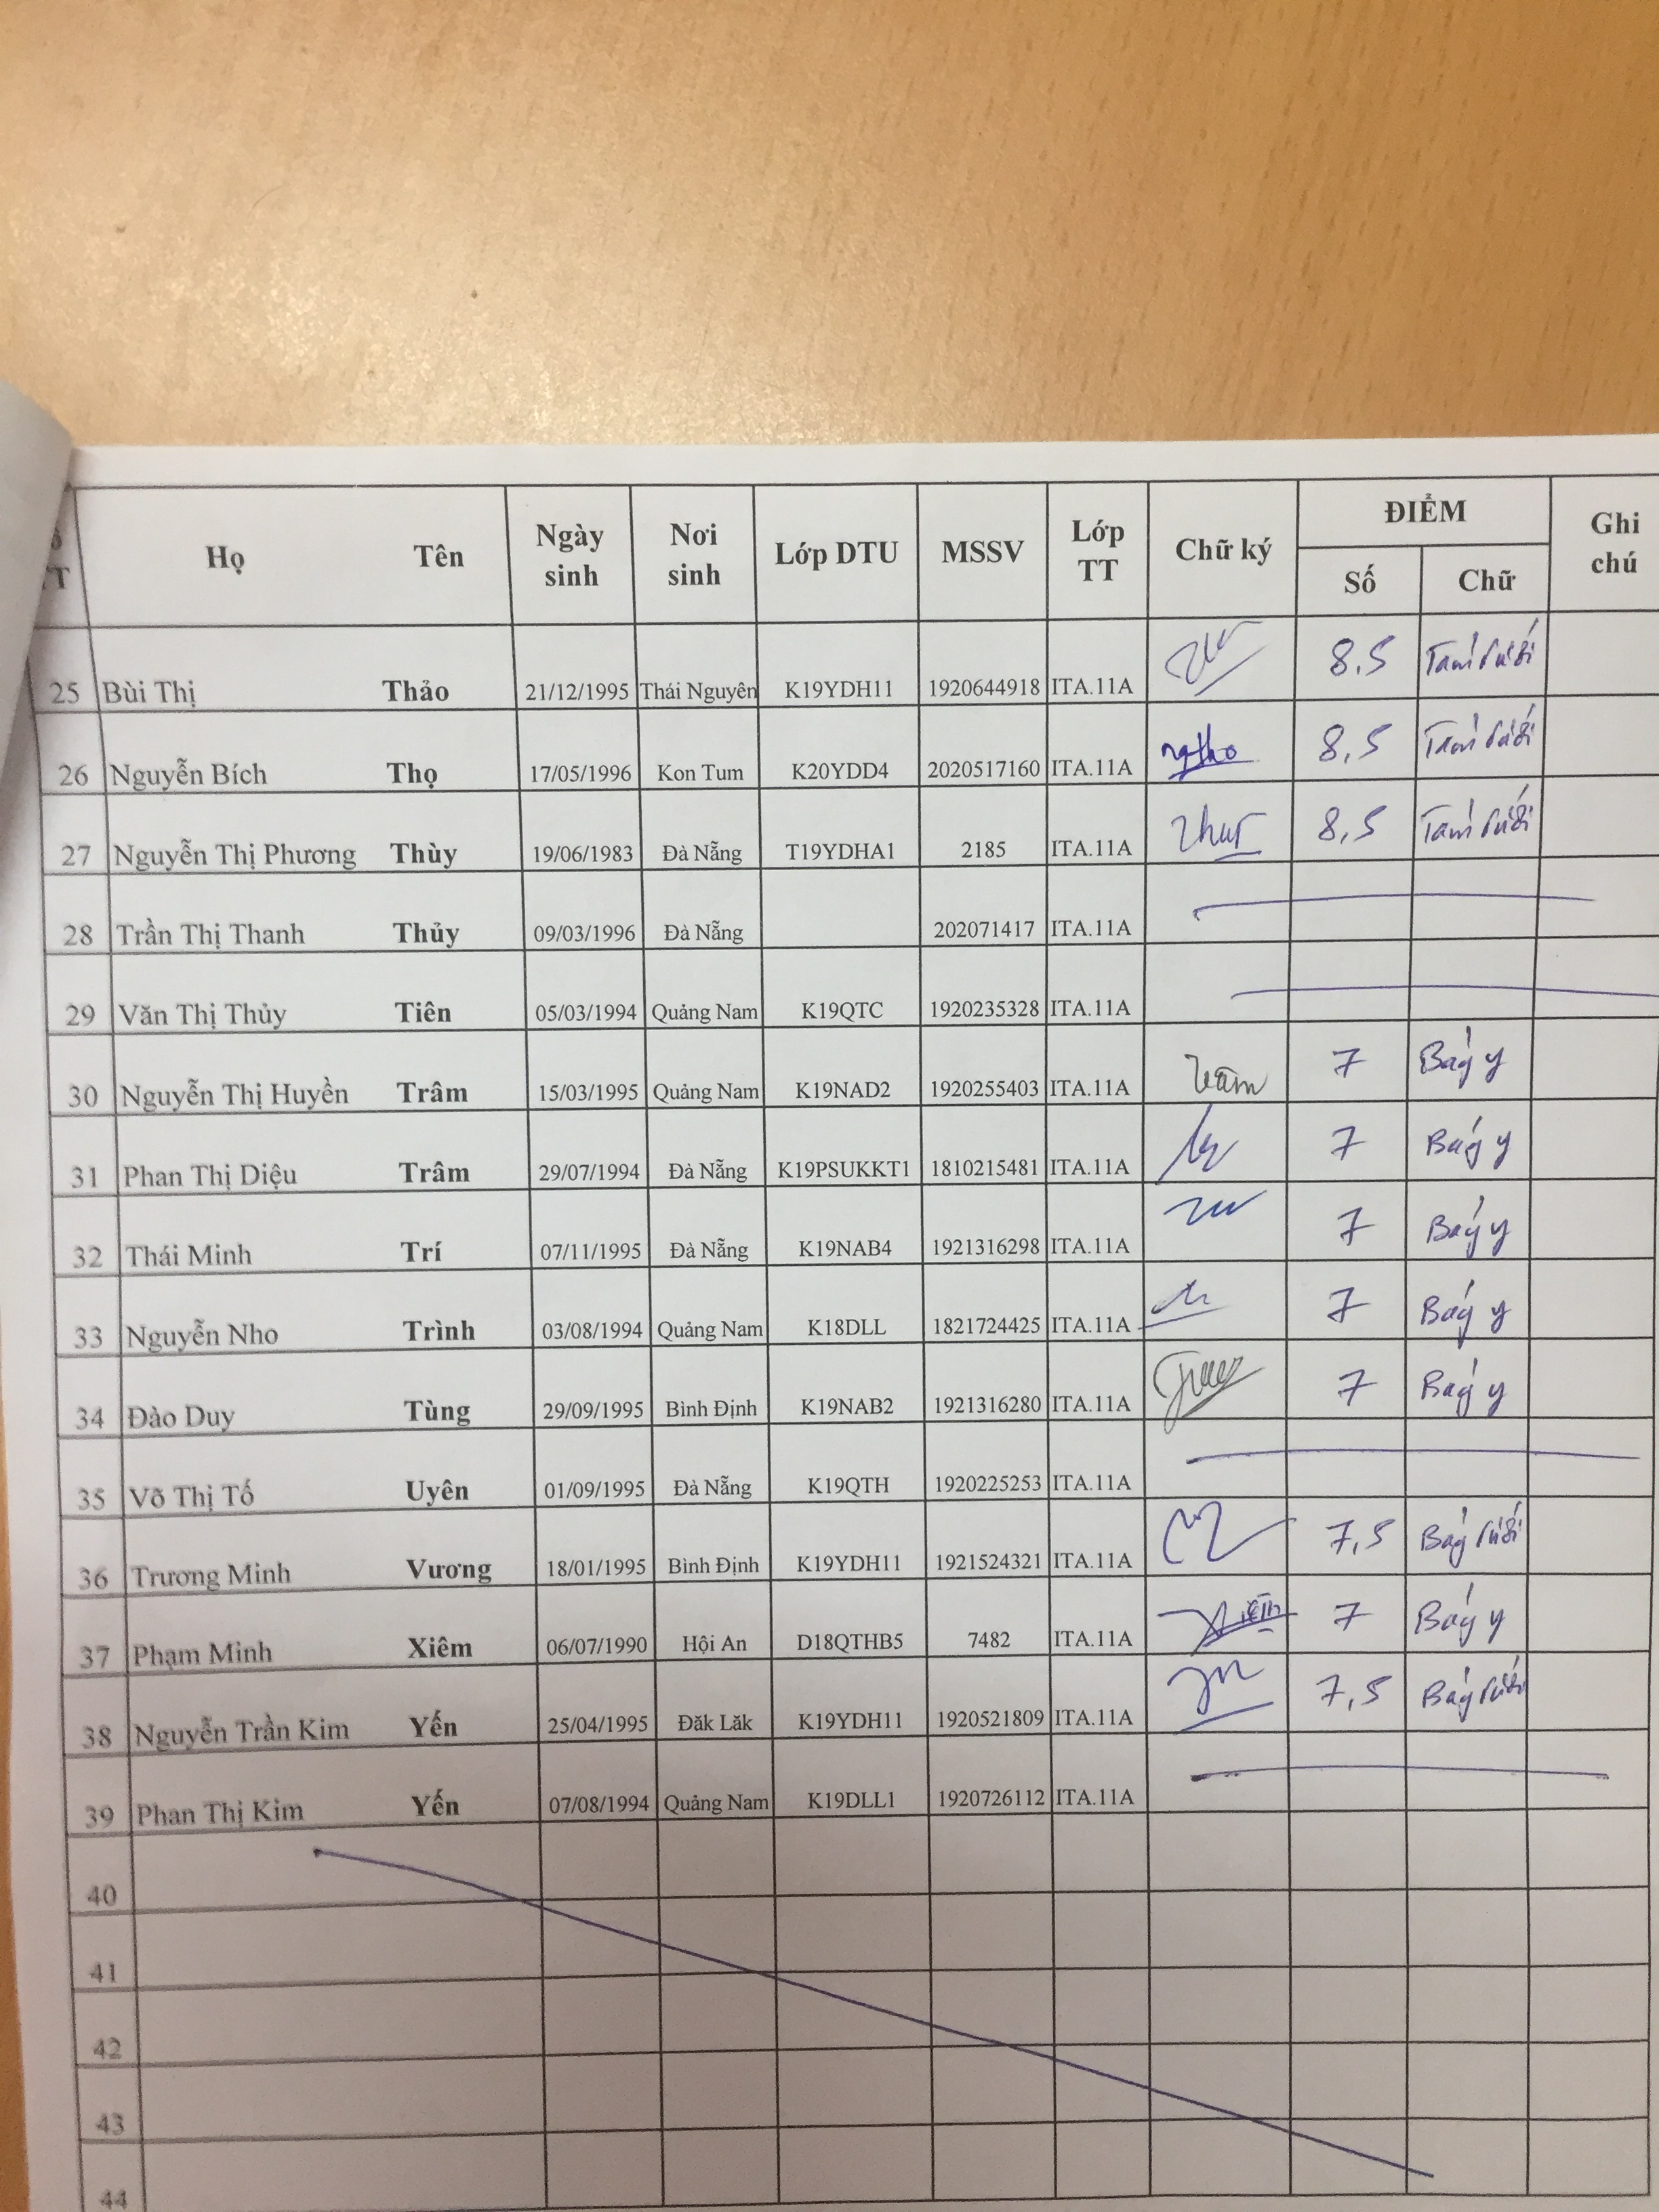 Họ Tên Ngày sinh Nơi sinh Lớp DTU MSSV Lớp TT Chữ ký ĐIỂM Số Chữ Ghi chú
25 Bùi Thị Thảo 21/12/1995 Thái Nguyên K19YDH11 1920644918 ITA.11A 8.5 Tám rưỡi
26 Nguyễn Bích Thọ 17/05/1996 Kon Tum K20YDD4 2020517160 ITA.11A ngtho 8,5 Tám rưỡi
27 Nguyễn Thị Phương Thùy 19/06/1983 Đà Nẵng T19YDHA1 2185 ITA.11A 8,5 Tám rưỡi
28 Trần Thị Thanh Thủy 09/03/1996 Đà Nẵng 202071417 ITA.11A
29 Văn Thị Thủy Tiên 05/03/1994 Quảng Nam K19QTC 1920235328 ITA.11A
30 Nguyễn Thị Huyền Trâm 15/03/1995 Quảng Nam K19NAD2 1920255403 ITA.11A Trâm 7 Bảy y
31 Phan Thị Diệu Trâm 29/07/1994 Đà Nẵng K19PSUKKT1 1810215481 ITA.11A 7 Bảy y
32 Thái Minh Trí 07/11/1995 Đà Nẵng K19NAB4 1921316298 ITA.11A 7 Bảy y
33 Nguyễn Nho Trình 03/08/1994 Quảng Nam K18DLL 1821724425 ITA.11A 7 Bảy y
34 Đào Duy Tùng 29/09/1995 Bình Định K19NAB2 1921316280 ITA.11A 7 Bảy y
35 Võ Thị Tố Uyên 01/09/1995 Đà Nẵng K19QTH 1920225253 ITA.11A
36 Trương Minh Vương 18/01/1995 Bình Định K19YDH11 1921524321 ITA.11A 7,5 Bảy rưỡi
37 Phạm Minh Xiêm 06/07/1990 Hội An D18QTHB5 7482 ITA.11A Xiêm 7 Bảy y
38 Nguyễn Trần Kim Yến 25/04/1995 Đăk Lăk K19YDH11 1920521809 ITA.11A 7,5 Bảy rưỡi
39 Phan Thị Kim Yến 07/08/1994 Quảng Nam K19DLL1 1920726112 ITA.11A
40
41
42
43
44